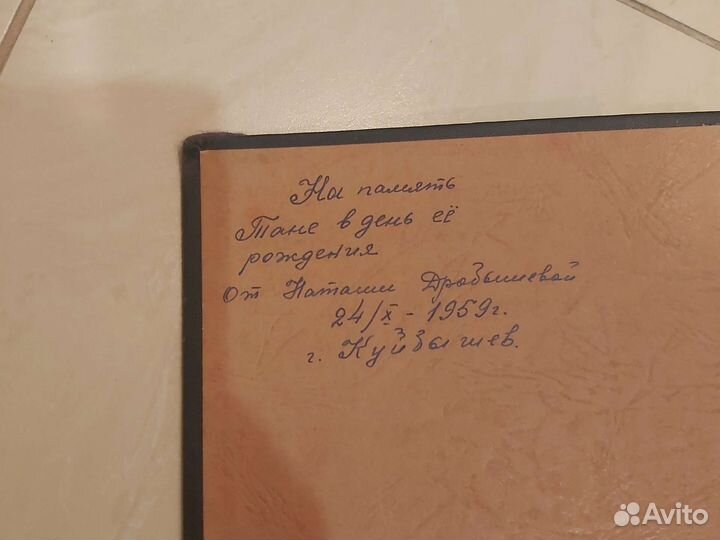 На память
Тане в день её
рождения
От Наташи Дробышевой
24/X - 1959г.
г. Куйбышев.
Avito